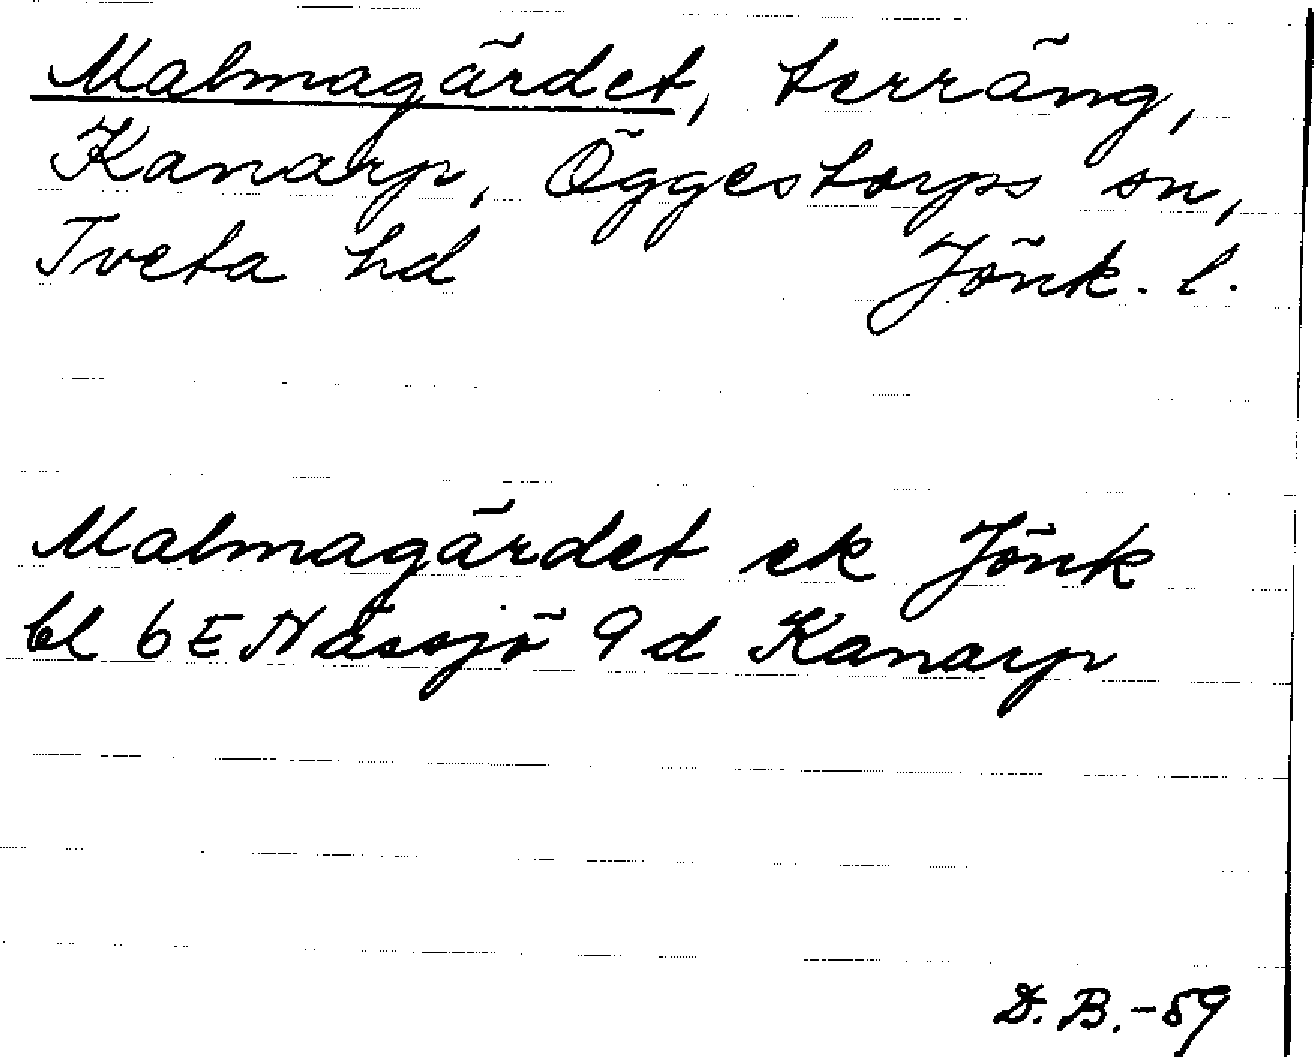 Malmagärdet, terräng,
Kanarp, Öggestorps sn,
Tveta hd Jönk. l.
Malmagärdet ek Jönk
bl 6E Nässjö 9d Kanarp
D. B. -59